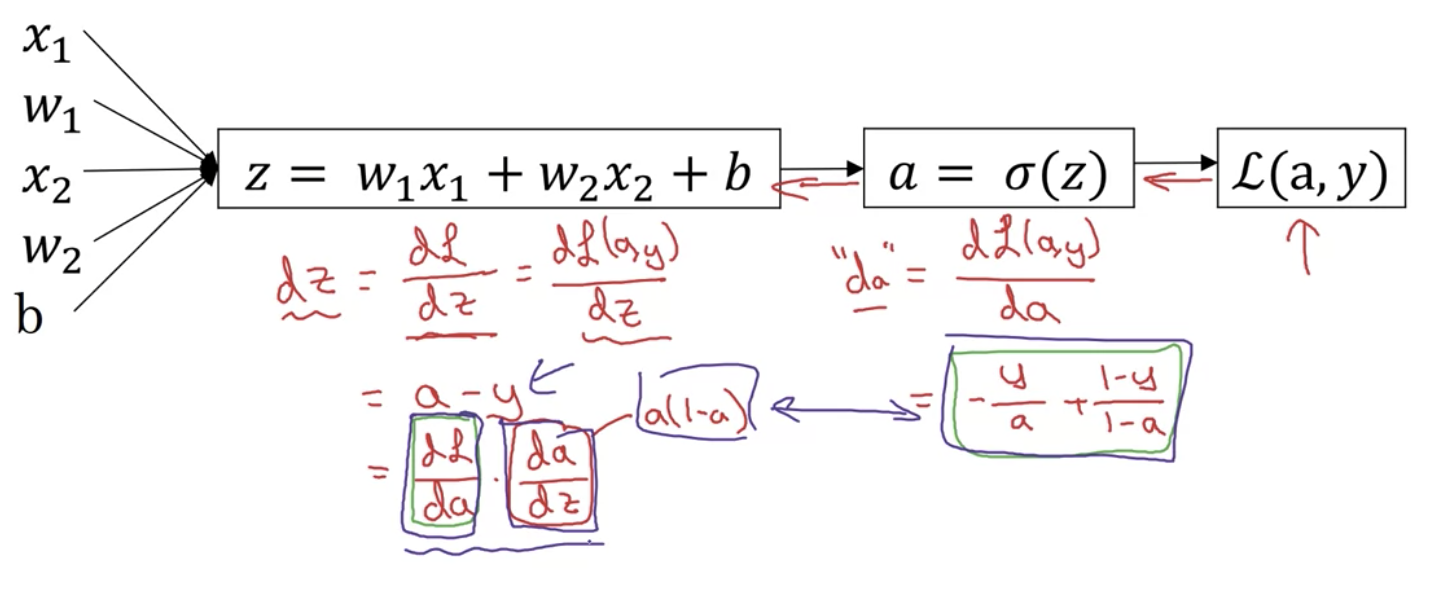 x₁
w₁
x₂
w₂
b
z = w₁x₁ + w₂x₂ + b
a = σ(z)
ℒ(a, y)
dz = dℒ/dz = dℒ(a,y)/dz
= a - y
= dℒ/da · da/dz
a(1-a)
"da" = dℒ(a,y)/da
= - y/a + 1-y/1-a